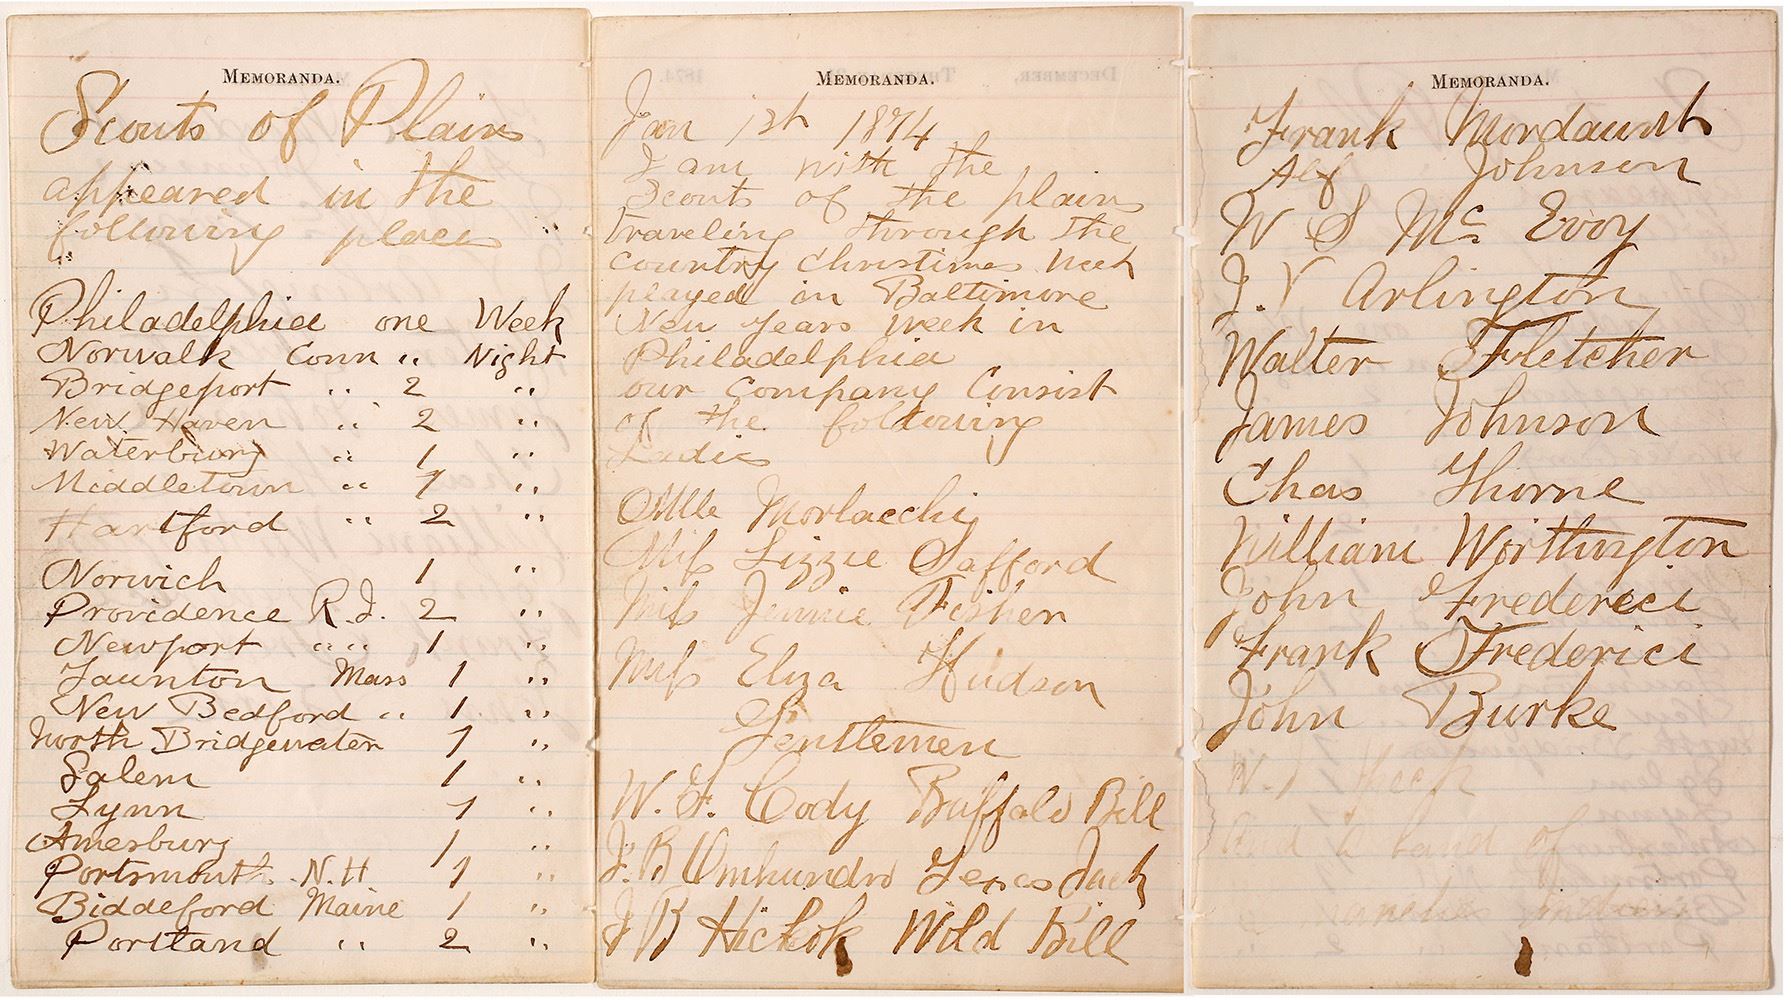 MEMORANDA.
Scouts of Plains
appeared in the
following places
Philadelphia one Week
Norwalk Conn " Night
Bridgeport " 2 "
New Haven " 2 "
Waterbury " 1 "
Middletown " 1 "
Hartford " 2 "
Norwich 1 "
Providence R.I. 2 "
Newport " " 1 "
Taunton Mass 1 "
New Bedford " 1 "
North Bridgewater 1 "
Salem 1 "
Lynn 1 "
Amesbury 1 "
Portsmouth N.H 1 "
Biddeford Maine 1 "
Portland " 2 "
MEMORANDA.
Jan 1st 1874
I am with the
Scouts of the plains
traveling through the
country Christimes week
played in Baltimore
New Years week in
Philadelphia
our Company Consist
of the following
Ladies
Mlle Morlacchi
Miss Lizzie Safford
Miss Jennie Fisher
Miss Eliza Hudson
Gentlemen
W. F. Cody Buffalo Bill
J. B Omhundro Texas Jack
J B Hickok Wild Bill
MEMORANDA.
Frank Mordaunt
Alf Johnson
W S Mc Evoy
J. V Arlington
Walter Fletcher
James Johnson
Chas Thorne
William Worthington
John Frederici
Frank Frederici
John Burke
and a band of
Indians